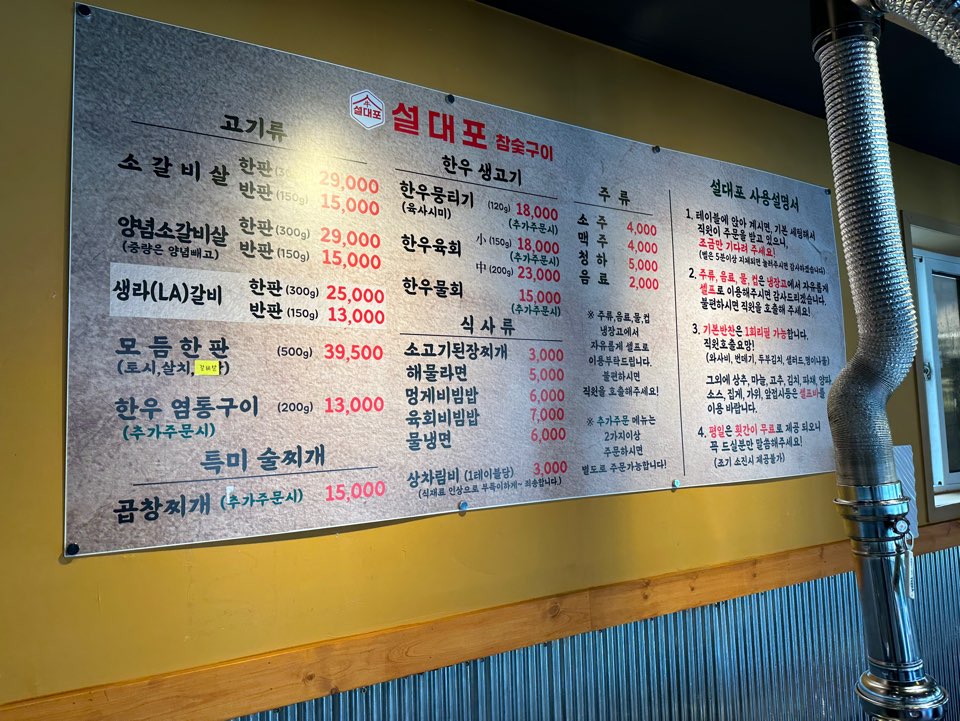 설대포
설대포 참숯구이
고기류
소갈비살 한판 29,000
반판 (150g) 15,000
양념소갈비살 한판 (300g) 29,000
(중량은 양념빼고) 반판 (150g) 15,000
생라(LA)갈비 한판 (300g) 25,000
반판 (150g) 13,000
모듬한판 (500g) 39,500
(토시,살치,
한우 염통구이 (200g) 13,000
(추가주문시)
특미 술찌개
곱창찌개 (추가주문시) 15,000
한우 생고기
한우뭉티기 (120g) 18,000
(육사시미) (추가주문시)
한우육회 小 (150g) 18,000
(추가주문시)
中 (200g) 23,000
한우물회 15,000
(추가주문시)
식사류
소고기된장찌개 3,000
해물라면 5,000
멍게비빔밥 6,000
육회비빔밥 7,000
물냉면 6,000
상차림비 (1테이블당) 3,000
(식재료 인상으로 부득이하게~ 죄송합니다.)
주류
소주 4,000
맥주 4,000
청하 5,000
음료 2,000
※ 주류,음료,물,컵
냉장고에서
자유롭게 셀프로
이용부탁드립니다.
불편하시면
직원을 호출해주세요!
※ 추가주문 메뉴는
2가지이상
주문하시면
별도로 주문가능합니다!
설대포 사용설명서
1. 테이블에 앉아 계시면, 기본 세팅해서
직원이 주문을 받고 있으니,
조금만 기다려 주세요!
(벨은 5분이상 지체되면 눌러주시면 감사하겠습니다)
2. 주류, 음료, 물, 컵은 냉장고에서 자유롭게
셀프로 이용해주시면 감사드리겠습니다.
불편하시면 직원을 호출해 주세요!
3. 기본반찬은 1회리필 가능합니다.
직원호출요망!
(와사비, 번데기, 두부김치, 샐러드, 명이나물)
그외에 상추, 마늘, 고추, 김치, 파채, 양파
소스, 집게, 가위, 앞접시등은 셀프바를
이용 바랍니다.
4. 평일은 횟간이 무료로 제공 되오니
꼭 드실분만 말씀해주세요!
(조기 소진시 제공불가)